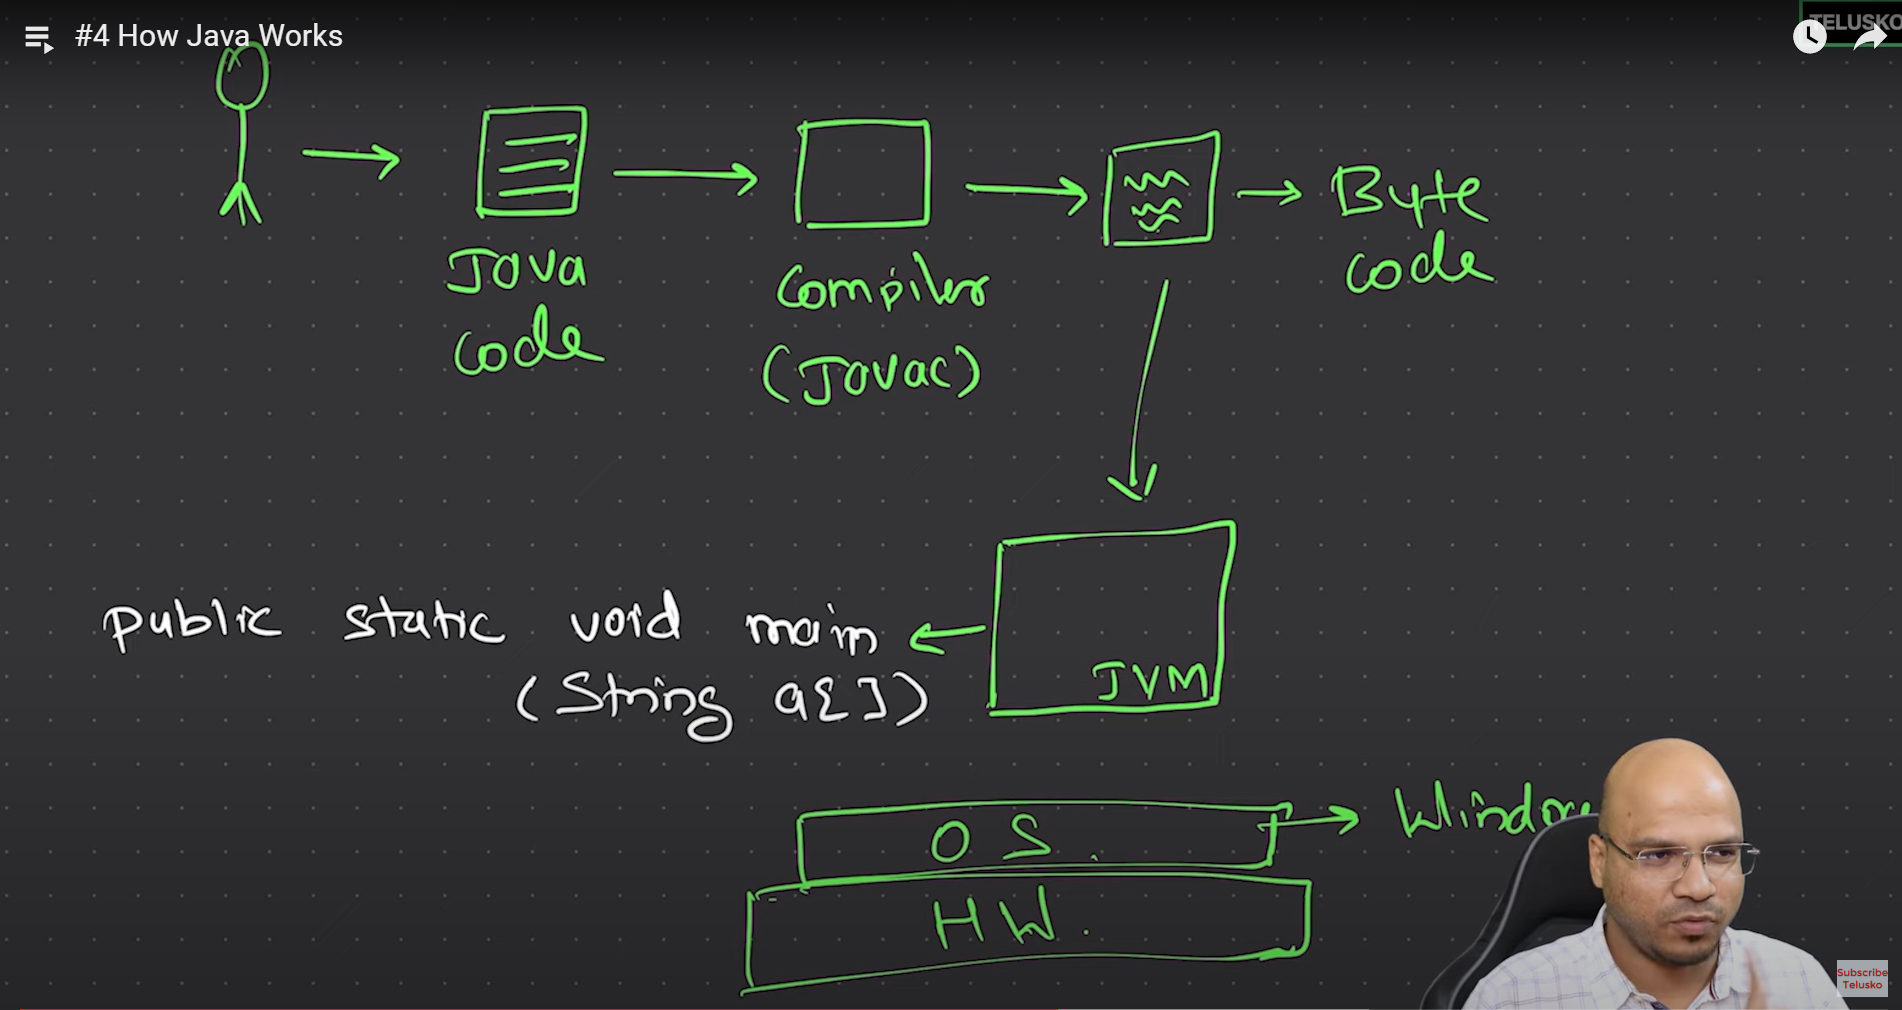 #4 How Java Works
TELUSKO
Java
code
Compiler
(Javac)
Byte
code
public static void main
(String a[])
JVM
OS.
HW.
Subscribe
Telusko